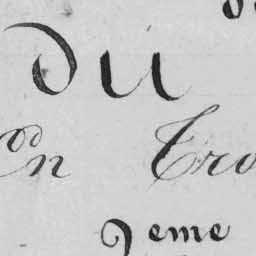 du
En Tro
2eme